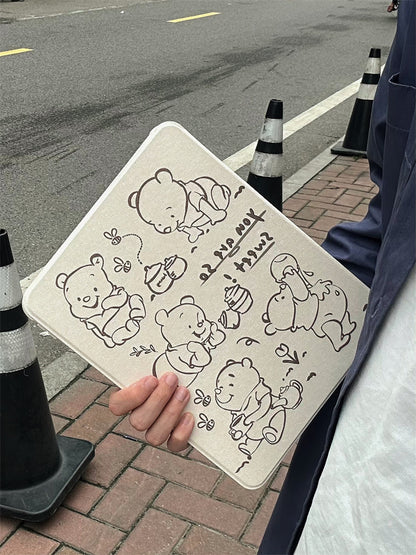 YOU ARE SO
SWEET !